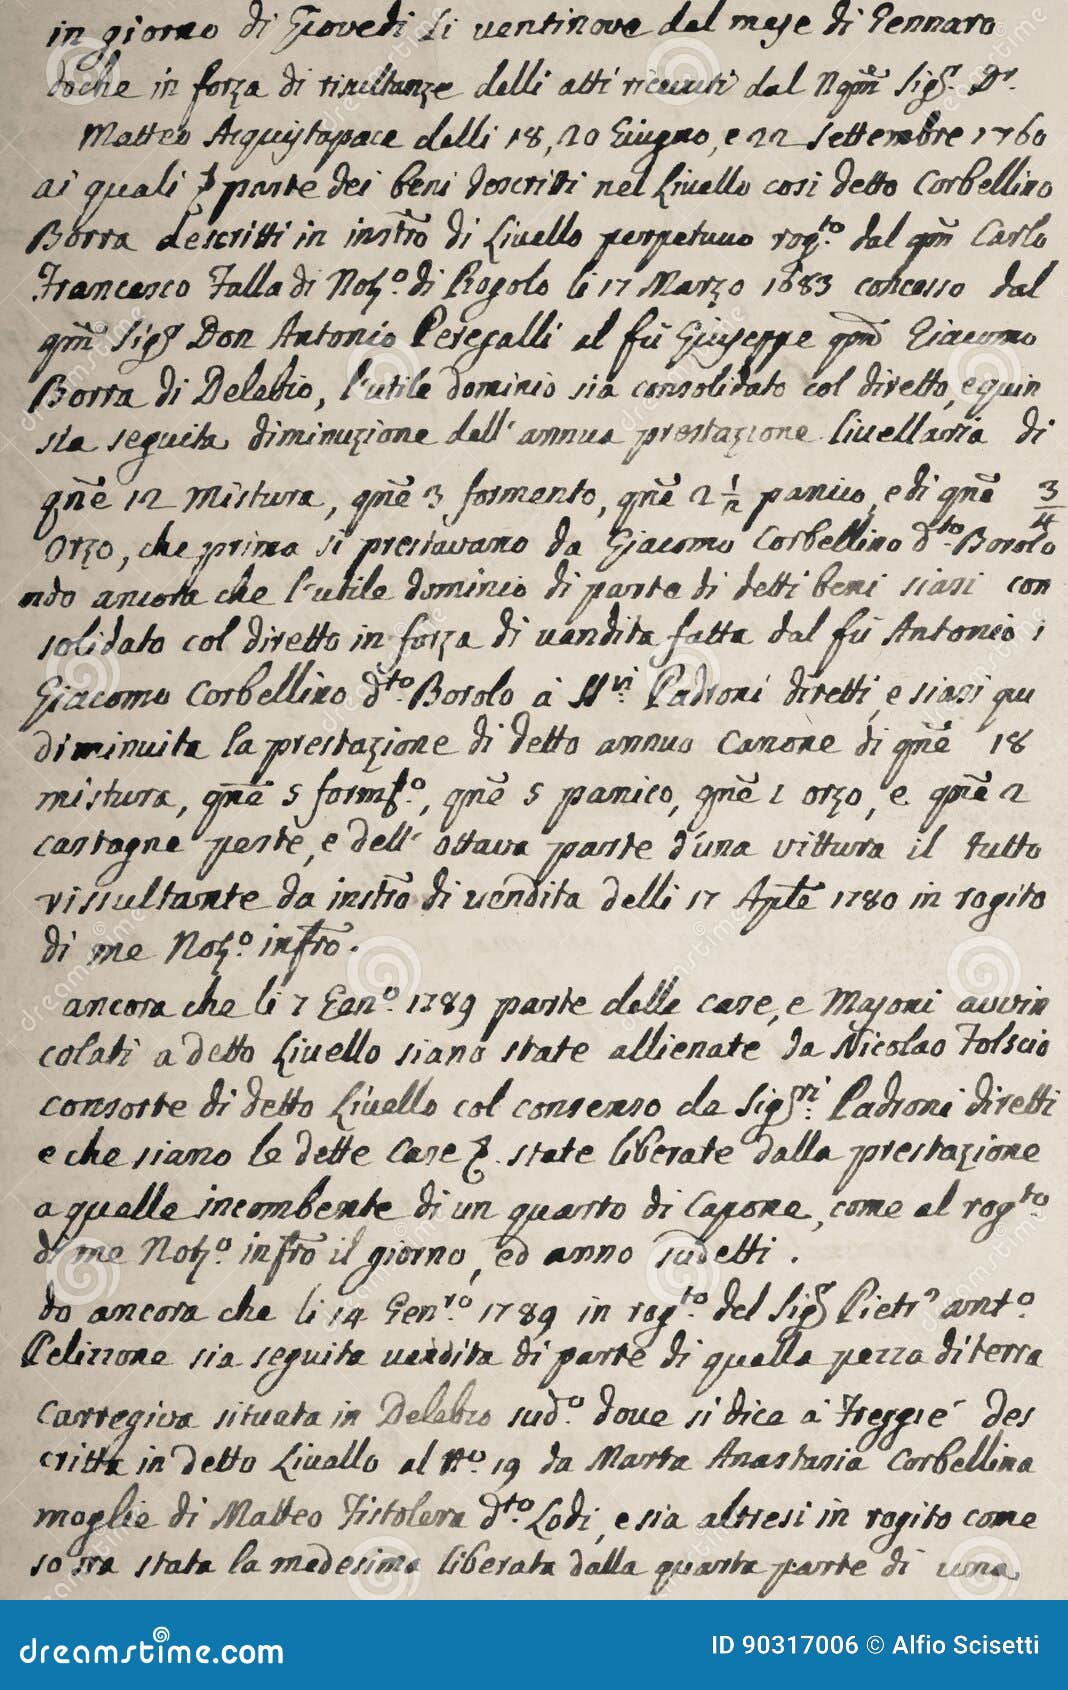 in giorno di Giovedi li ventinove del mese di Gennaro
doche in forza di risultanze delli atti ricevuti dal Nqm̃ Sigr. Dr.
Matteo Acquistapace delli 18, 20 Giugno, e 22 Settembre 1760
ai quali parte dei beni descritti nel Livello cosi detto Corbellino
Borra descritti in instrõ di Livello perpetuuo rogto. dal qm̃ Carlo
Francesco Talla di Notzo. di Rogolo li 17 Marzo 1683 concesso dal
qm̃ Sigr Don Antonio Peregalli al fù Giuseppe qm̃ Giacomo
Borra di Delebio, l'utile dominio sia consolidato col diretto, e quin
sia seguita diminuzione dell' annua prestazione livellaria di
qñe 12 Mistura, qñe 3 formento, qñe 2 1/2 panico, e di qñe 3/4
Orzo, che prima si prestavano da Giacomo Corbellino dto. Borolo
ndo ancora che l'utile dominio di parte di detti beni siasi con
solidato col diretto in forza di vendita fatta dal fù Antonio
Giacomo Corbellino dto. Borolo à Padroni diretti, e siasi qui
diminuita la prestazione di detto annuo Canone di qñe 18
mistura, qñe 5 formto., qñe 5 panico, qñe 1 orzo, e qñe 2
castagne peste, e dell' ottava parte d'una vittura il tutto
rissultante da instrõ di vendita delli 17 Aplẽ 1780 in rogito
di me Notzo. infrõ.
ancora che li 7 Geno. 1789 parte delle case, e Masoni avvin
colati a detto Livello siano state allienate da Nicolao Folscio
consorte di detto Livello col consenso de Sigri. Padroni diretti
e che siano le dette Case state liberate dalla prestazione
a quelle incombente di un quarto di Capone, come al rogto
di me Notzo. infrõ il giorno, ed anno sudetti.
do ancora che li 14 Genro. 1789 in rogto. del Sigr Pietro anto.
Pelizzone sia seguita vendita di parte di quella pezza di terra
Carregiva situata in Delebio sudo. dove si dice à Freggié des
critta in detto Livello al No. 19 da Marta Anastasia Corbellina
moglie di Matteo Fistolera dto. Lodi, e sia altresi in rogito come
so sra stata la medesima liberata dalla quarta parte di una
dreamstime.com
ID 90317006 © Alfio Scisetti